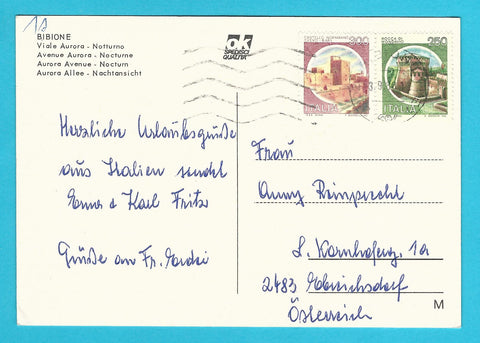 BIBIONE
Viale Aurora - Notturno
Avenue Aurora - Nocturne
Aurora Avenue - Nocturn
Aurora Allee - Nachtansicht
OK
SPEDISCI
QUALITÀ
300
ITALIA
250
ITALIA
Herzliche Urlaubsgrüße
aus Italien sendet
& Karl Fritz
Grüße an Fr.
Frau
Anny Reinprecht
L. Kornhoferg. 1a
2483 Ebreichsdorf
Österreich
M